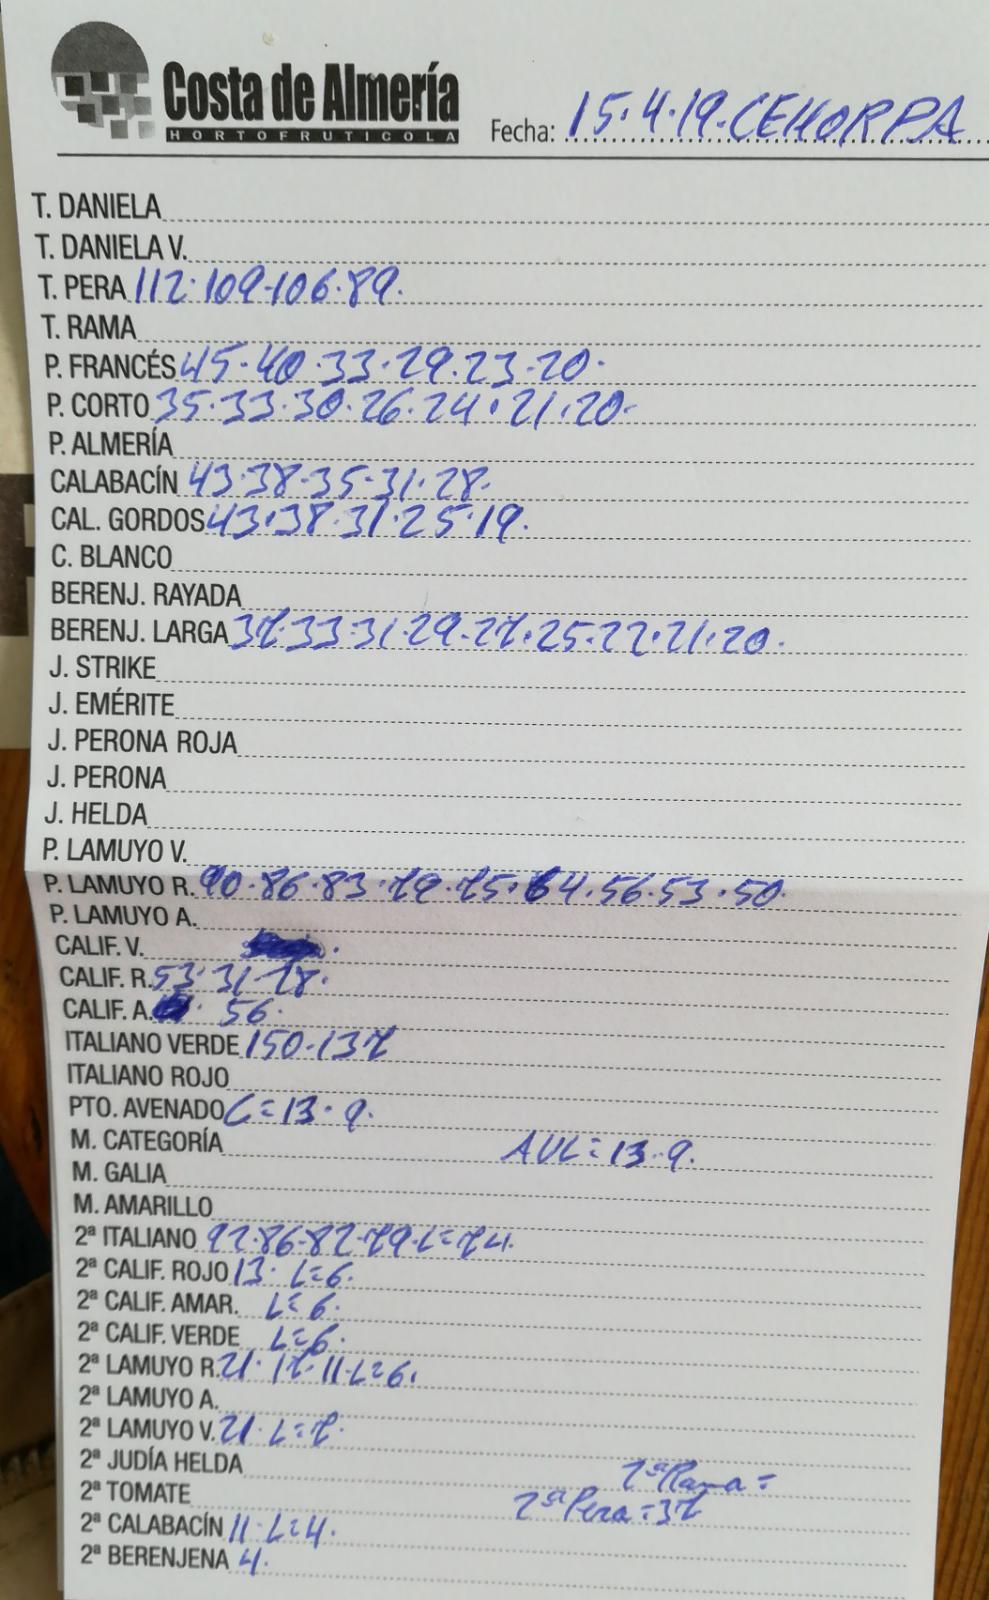 Costa de Almería
HORTOFRUTICOLA
Fecha: 15.4.19.CEHORPA
T. DANIELA
T. DANIELA V.
T. PERA 112.109.106.89.
T. RAMA
P. FRANCÉS 45.40.33.29.23.20.
P. CORTO 35.33.30.26.24.21.20-
P. ALMERÍA
CALABACÍN 43.38.35.31.28.
CAL. GORDOS 43.38.31.25.19.
C. BLANCO
BERENJ. RAYADA
BERENJ. LARGA 37.33.31.29.27.25.22.21.20.
J. STRIKE
J. EMÉRITE
J. PERONA ROJA
J. PERONA
J. HELDA
P. LAMUYO V.
P. LAMUYO R. 90.86.83.79.75.64.56.53.50.
P. LAMUYO A.
CALIF. V.
CALIF. R. 53.31.28.
CALIF. A. 56.
ITALIANO VERDE 150.137
ITALIANO ROJO
PTO. AVENADO C=13.9.
M. CATEGORÍA AVL=13.9.
M. GALIA
M. AMARILLO
2ª ITALIANO 92.86.82.79.L=74.
2ª CALIF. ROJO 13. L=6.
2ª CALIF. AMAR. L=6.
2ª CALIF. VERDE L=6.
2ª LAMUYO R. 21.17.11.L=6.
2ª LAMUYO A.
2ª LAMUYO V. 21.L=7.
2ª JUDÍA HELDA 2ª Rama=
2ª TOMATE 2ª Pera=37
2ª CALABACÍN 11.L=4.
2ª BERENJENA 4.